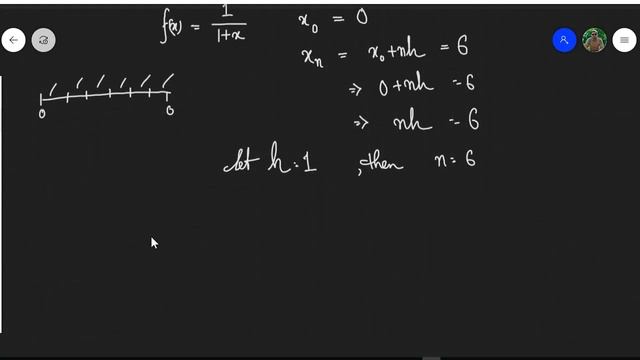 f(x) = 1/(1+x)    x₀ = 0
xₙ = x₀+nh = 6
⇒ 0+nh = 6
⇒ nh = 6
let h = 1, then n = 6
0    0